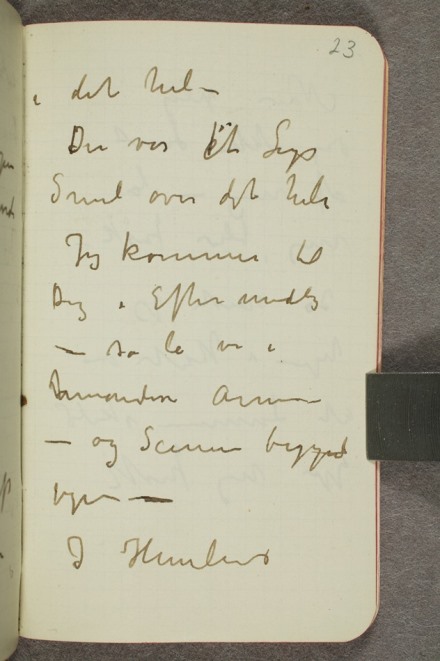 23
i det hele
Der var Et Lys
Smil over det hele
Jeg kommer til
Dig i Eftermiddag
— så lo vi i
hinandens Arme
— og Scenen begynte
igjen —
I